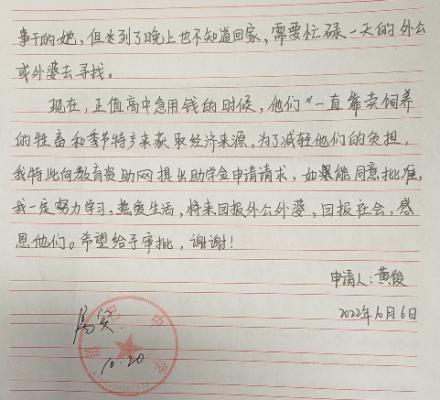 事干的她,但达到了晚上也不知道回家,需要忙碌一天的外公
或外婆去寻找。
现在,正值高中急用钱的时候,他们一直靠卖饲养
的牲畜和季节特产来获取经济来源,为了减轻他们的负担,
我特此向教育资助网提出助学金申请请求,如果能同意批准,
我一定努力学习,热爱生活,将来回报外公外婆,回报社会,感
恩他们。希望给予审批,谢谢!
申请人:黄俊
2022年10月6日
属实.
10.20